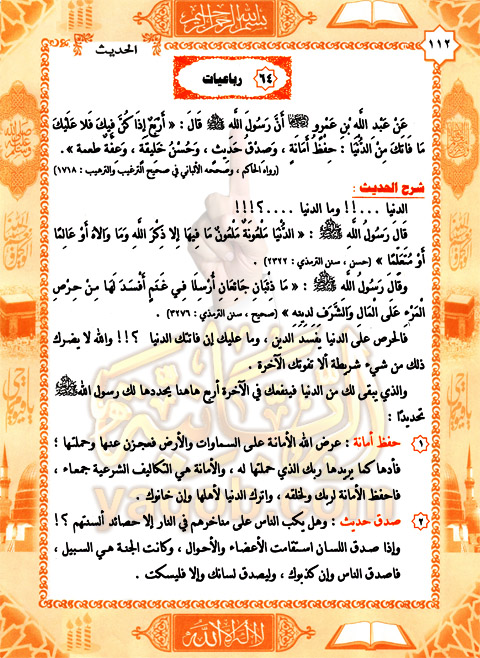 بسم الله الرحمن الرحيم
الحديث
١١٢
٦٤ رباعيات
عَنْ عَبْدِ اللَّهِ بْنِ عَمْرٍو رضي الله عنهما أَنَّ رَسُولَ اللَّهِ ﷺ قَالَ : « أَرْبَعٌ إِذَا كُنَّ فِيكَ فَلَا عَلَيْكَ
مَا فَاتَكَ مِنَ الدُّنْيَا : حِفْظُ أَمَانَةٍ ، وَصِدْقُ حَدِيثٍ ، وَحُسْنُ خَلِيقَةٍ ، وَعِفَّةُ طُعْمَةٍ » .
(رواه الحاكم ، وصححه الألباني في صحيح الترغيب والترهيب : ١٧١٨)
شرح الحديث :
الدنيا ....!! وما الدنيا ....؟!!!
قَالَ رَسُولُ اللَّهِ ﷺ : « الدُّنْيَا مَلْعُونَةٌ مَلْعُونٌ مَا فِيهَا إِلَّا ذِكْرَ اللَّهِ وَمَا وَالَاهُ أَوْ عَالِمًا
أَوْ مُتَعَلِّمًا » (حسن ، سنن الترمذي : ٢٣٢٢) .
وقَالَ رَسُولُ اللَّهِ ﷺ : « مَا ذِئْبَانِ جَائِعَانِ أُرْسِلَا فِي غَنَمٍ أَفْسَدَ لَهَا مِنْ حِرْصِ
الْمَرْءِ عَلَى الْمَالِ وَالشَّرَفِ لِدِينِهِ » (صحيح ، سنن الترمذي : ٣٢٧٦) .
فالحرص على الدنيا يفسد الدين ، وما عليك إن فاتتك الدنيا ؟!! والله لا يضرك
ذلك من شيء شريطة ألا تفوتك الآخرة .
والذي يبقى لك من الدنيا فينفعك في الآخرة أربع هاهنا يحددها لك رسول الله ﷺ
تحديدًا :
١ حفظ أمانة : عرض الله الأمانة على السماوات والأرض فعجزن عنها وحملتها ؛
فأدها كما يريدها ربك الذي حملتها له ، والأمانة هي التكاليف الشرعية جمعاء ،
فاحفظ الأمانة لربك ولخلقه ، واترك الدنيا لأهلها وإن خانوك .
٢ صدق حديث : وهل يكب الناس على مناخرهم في النار إلا حصائد ألسنتهم ؟!
وإذا صدق اللسان استقامت الأعضاء والأحوال ، وكانت الجنة هي السبيل ،
فاصدق الناس وإن كذبوك ، وليصدق لسانك وإلا فليسكت .
لا إله إلا الله